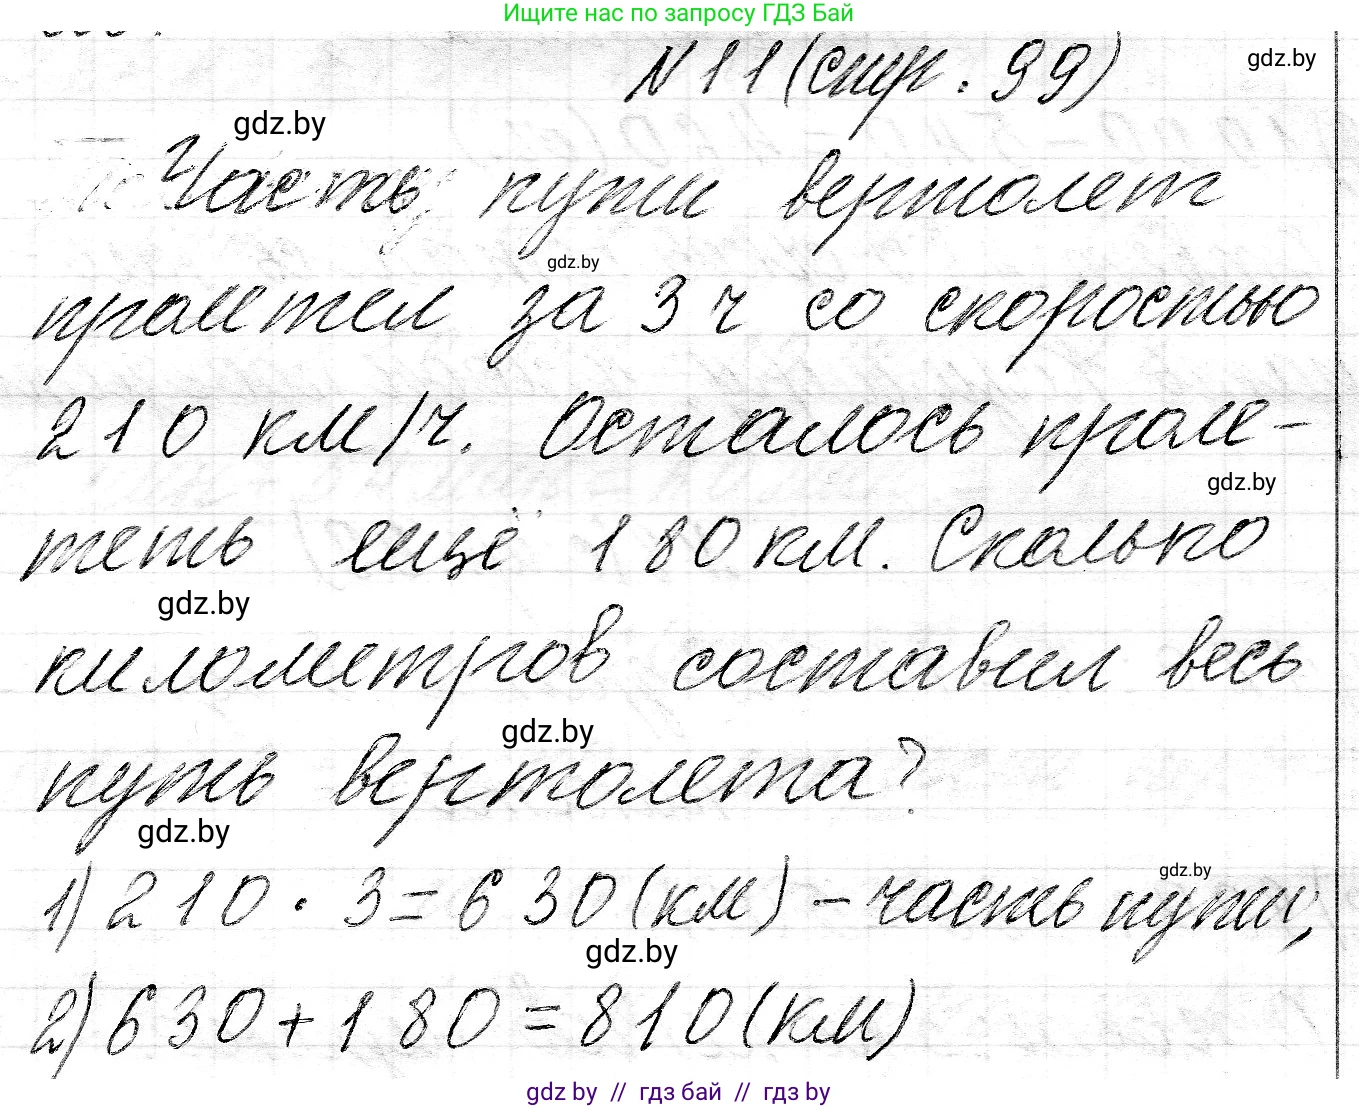 Ищите нас по запросу ГДЗ Бай
N 11 (стр. 99)
gdz.by
gdz.by
Часть пути вертолет
gdz.by
пролетел за 3 ч со скоростью
210 км/ч. Осталось проле-
gdz.by
теть ещё 180 км. Сколько
gdz.by
километров составил весь
gdz.by
путь вертолета?
gdz.by
gdz.by
1) 210 · 3 = 630 (км) - часть пути,
gdz.by
2) 630 + 180 = 810 (км)
gdz.by // гдз бай // гдз by